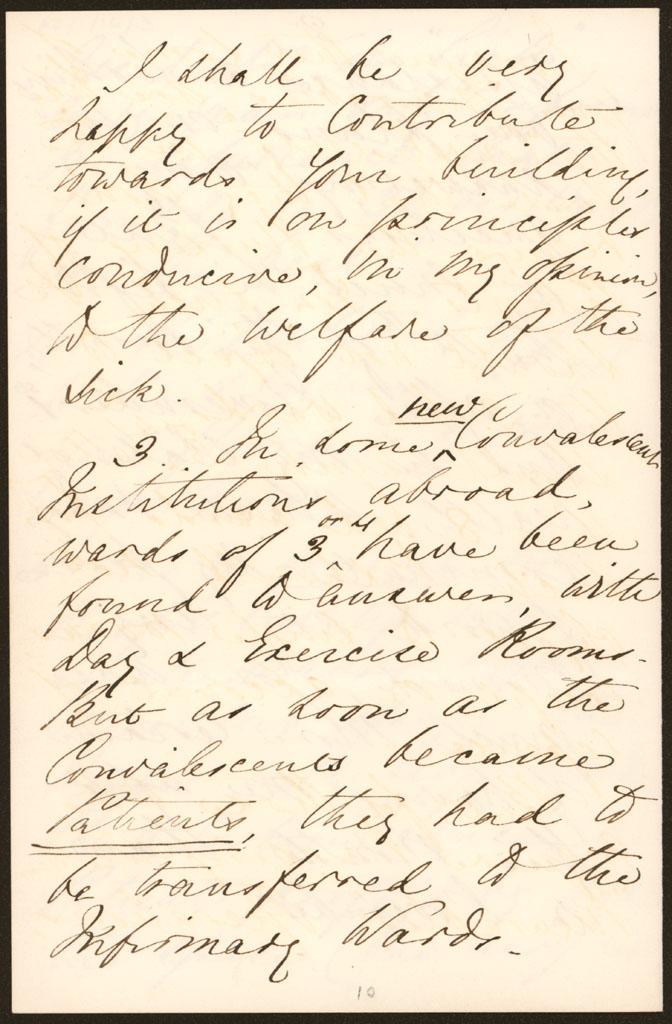 I shall be very
happy to contribute
towards your building,
if it is on principles
conducive, in my opinion,
to the welfare of the
sick.
3. In some ^new Convalescent
Institutions abroad,
wards of 3 ^or 4 have been
found to answer, with
Day & Exercise Rooms.
But as soon as the
Convalescents became
Patients, they had to
be transferred to the
Infirmary Wards.
10